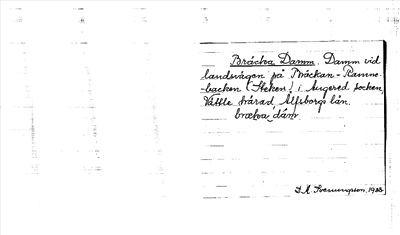 Bräcka Damm. Damm vid
landsvägan på Bräckan - Ramne-
backen (Steken) i Angered socken,
Vättle härad, Älfsborgs län.
bræka dám.
1933